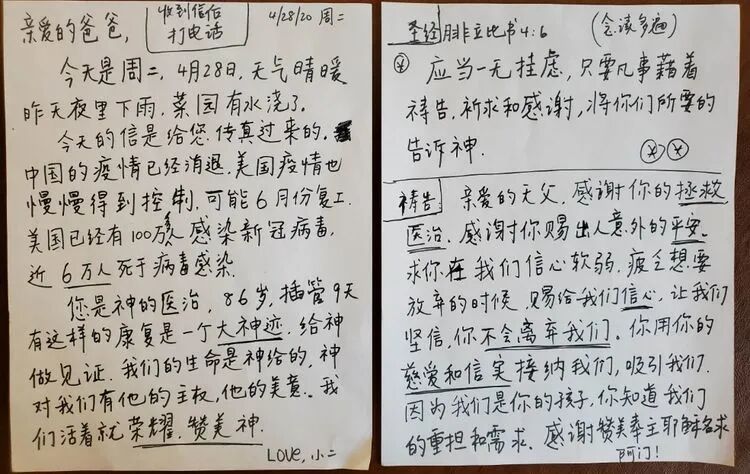 亲爱的爸爸,
收到信后
打电话
4/28/20 周二
今天是周二,4月28日,天气晴暖
昨天夜里下雨,菜园有水浇了.
今天的信是给您传真过来的.
中国的疫情已经消退.美国疫情也
慢慢得到控制,可能6月份复工.
美国已经有100万人感染新冠病毒,
近6万人死于病毒感染.
您是神的医治,86岁,插管9天
有这样的康复是一个大神迹.给神
做见证.我们的生命是神给的,神
对我们有他的主权,他的美意.我
们活着就荣耀.赞美神.
LOVE,小二
圣经腓立比书4:6
(念读多遍)
应当一无挂虑,只要凡事藉着
祷告,祈求和感谢,将你们所要的
告诉神.
祷告: 亲爱的天父,感谢你的拯救
医治.感谢你赐出人意外的平安.
求你在我们信心软弱,疲乏想要
放弃的时候,赐给我们信心,让我们
坚信,你不会离弃我们.你用你的
慈爱和信实接纳我们,吸引我们.
因为我们是你的孩子,你知道我们
的重担和需求.感谢赞美奉主耶稣名求
阿门!